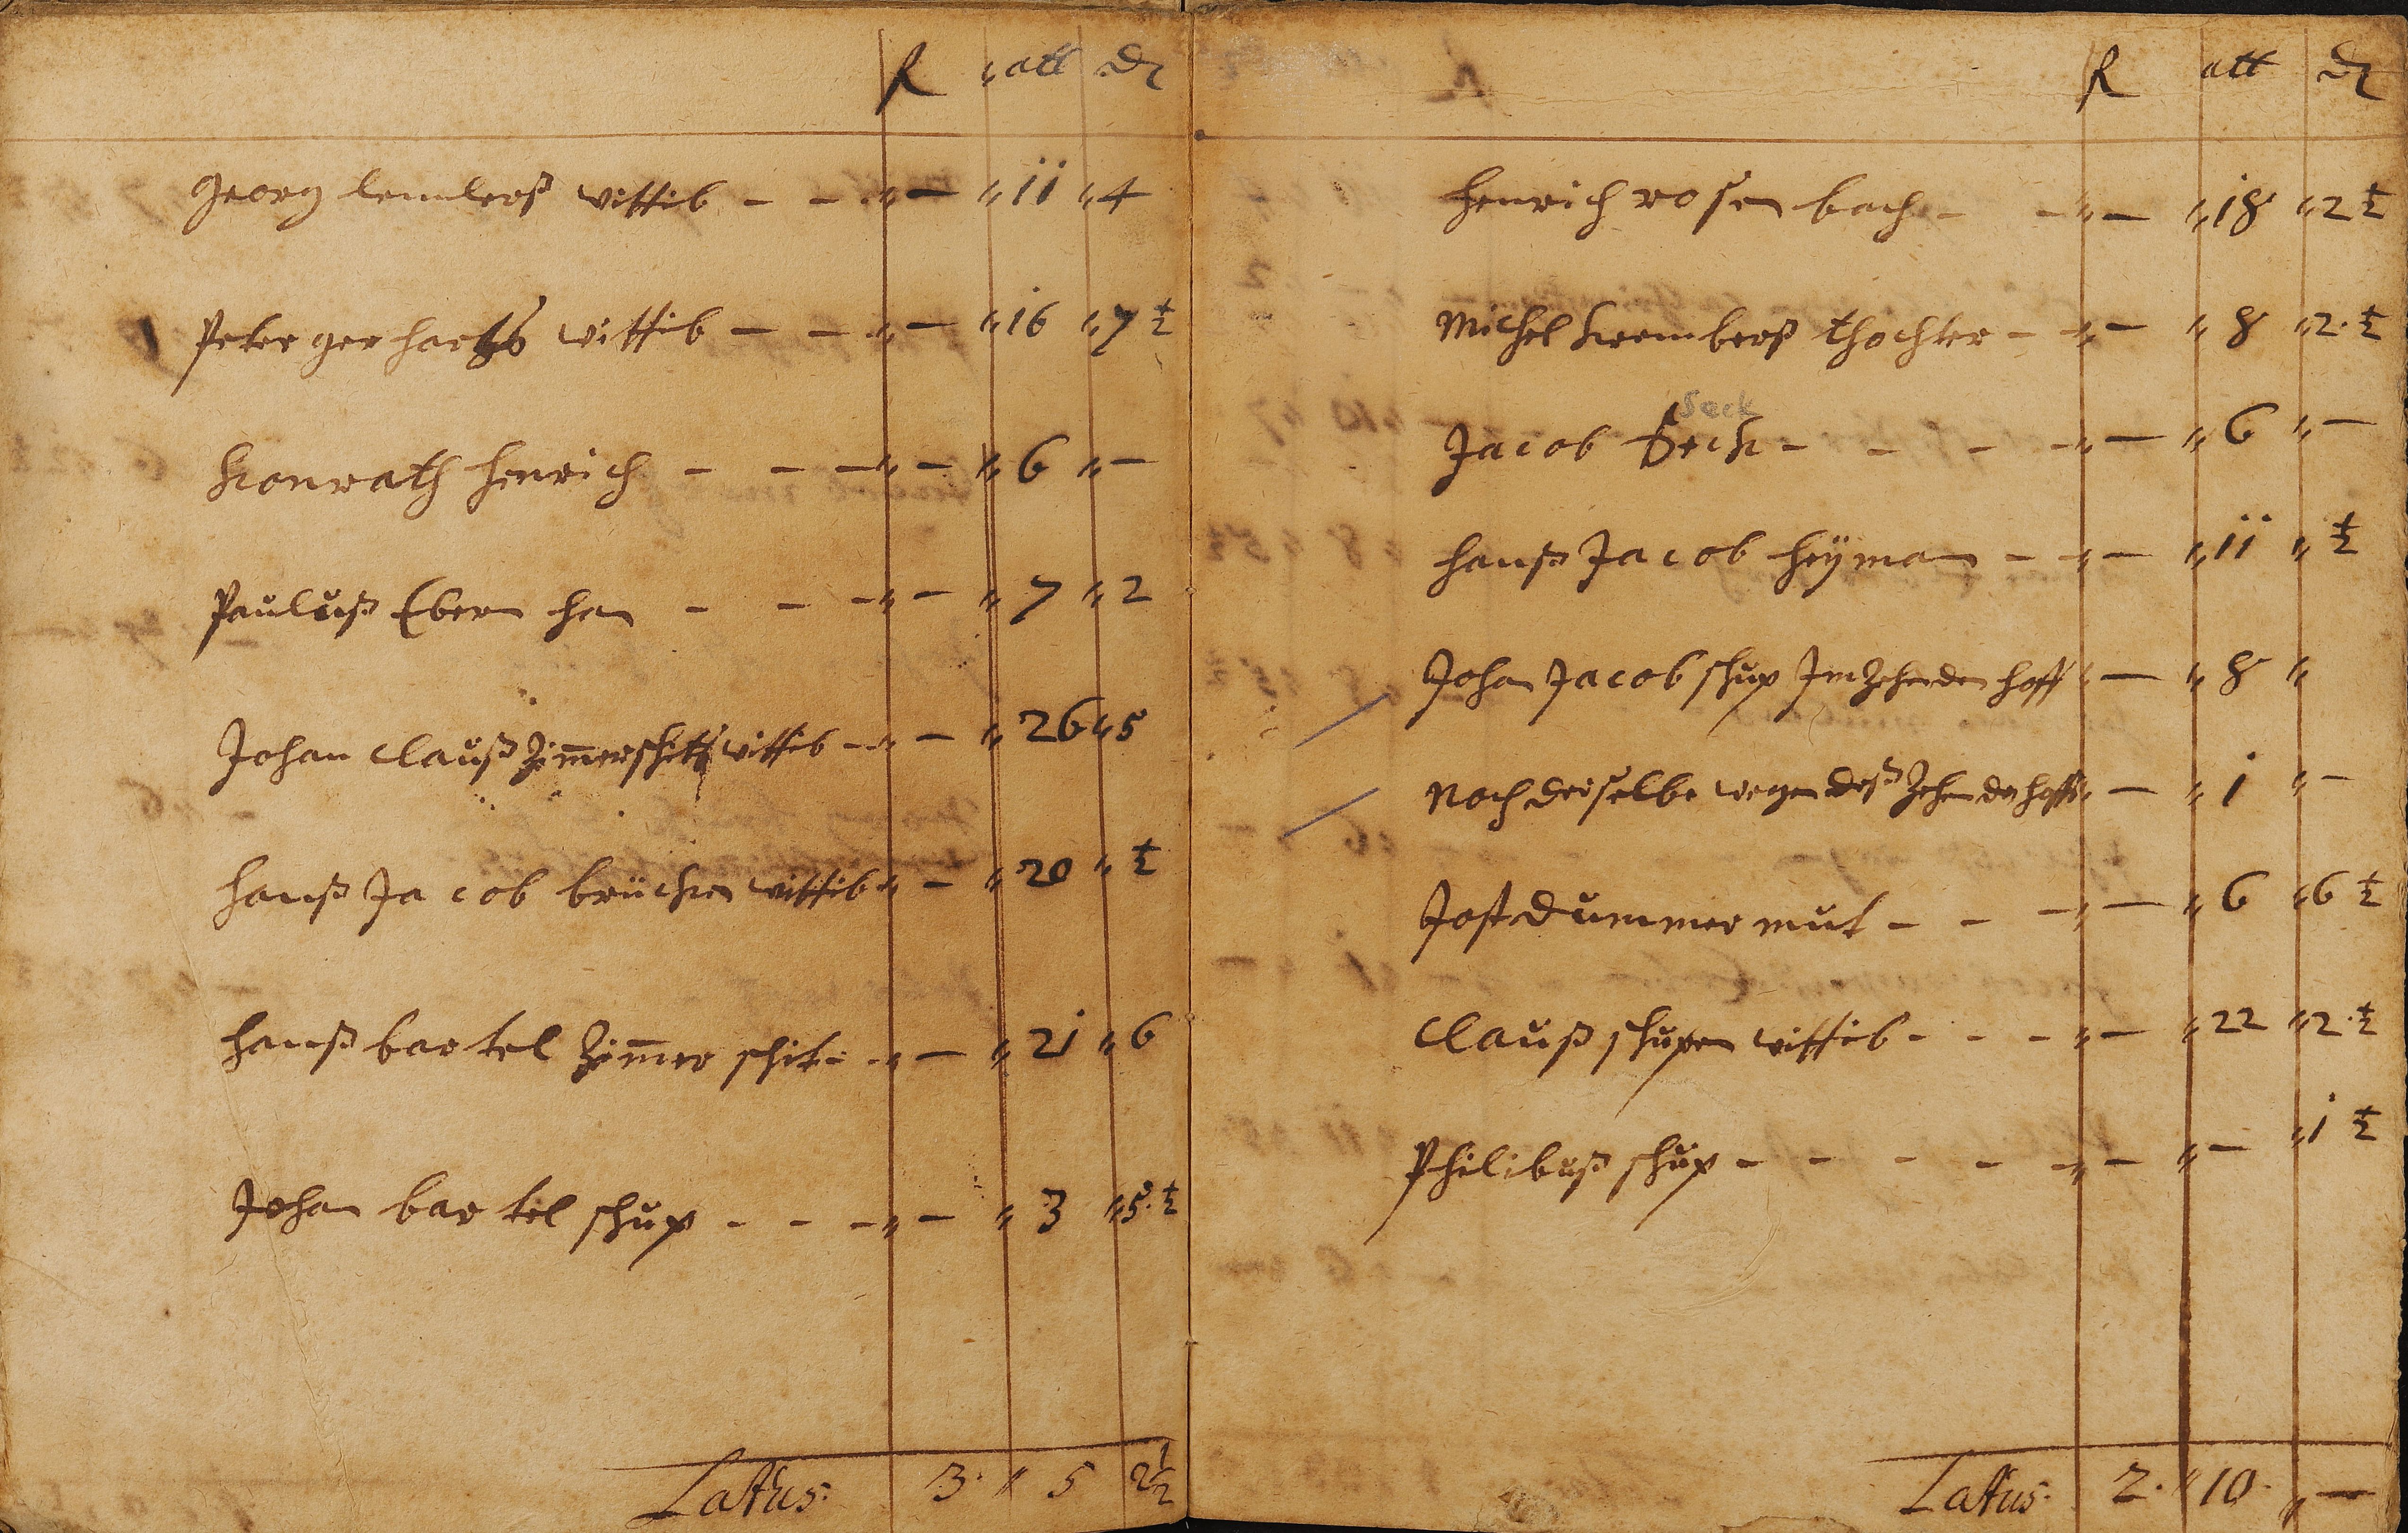 fl „ att dr
Georg lemlerß wittib - - „ - „ 11 „ 4
Peter gerhartß wittib - - „ - „ 16 „ 7 ½
Konrath Henrich - - - „ - „ 6 „ -
Paulüß Ebern han - - - „ - „ 7 „ 2
Johan Clauß Zimerschitß wittib - „ - „ 26 „ 5
Hanß Jacob brücken wittib „ - „ 20 „ ½
Hanß bartel Zimer schit - „ - „ 21 „ 6
Johan bartel schup - - - „ - „ 3 „ 5 ½
Latus: 3 „ 5 2½
fl att dr
Henrich rosenbach - - „ - „ 18 „ 2 ½
Michel kremberß thochter - „ - „ 8 „ 2 ½
Seck
Jacob Seck - - - - „ - „ 6 „ -
Hanß Jacob heÿman - „ - „ 11 „ ½
Johan Jacob schup Im Zehenden hoff „ - „ 8 „
Noch derselbe wegen deß Zehenden hoffß „ - „ 1 „ -
Jost dummer mut - - - „ - „ 6 „ 6 ½
Clauß schupen wittib - - - „ - „ 22 „ 2 ½
Philibuß schup - - - - - „ - „ - „ 1 ½
Latus. 2. „ 10. „ -